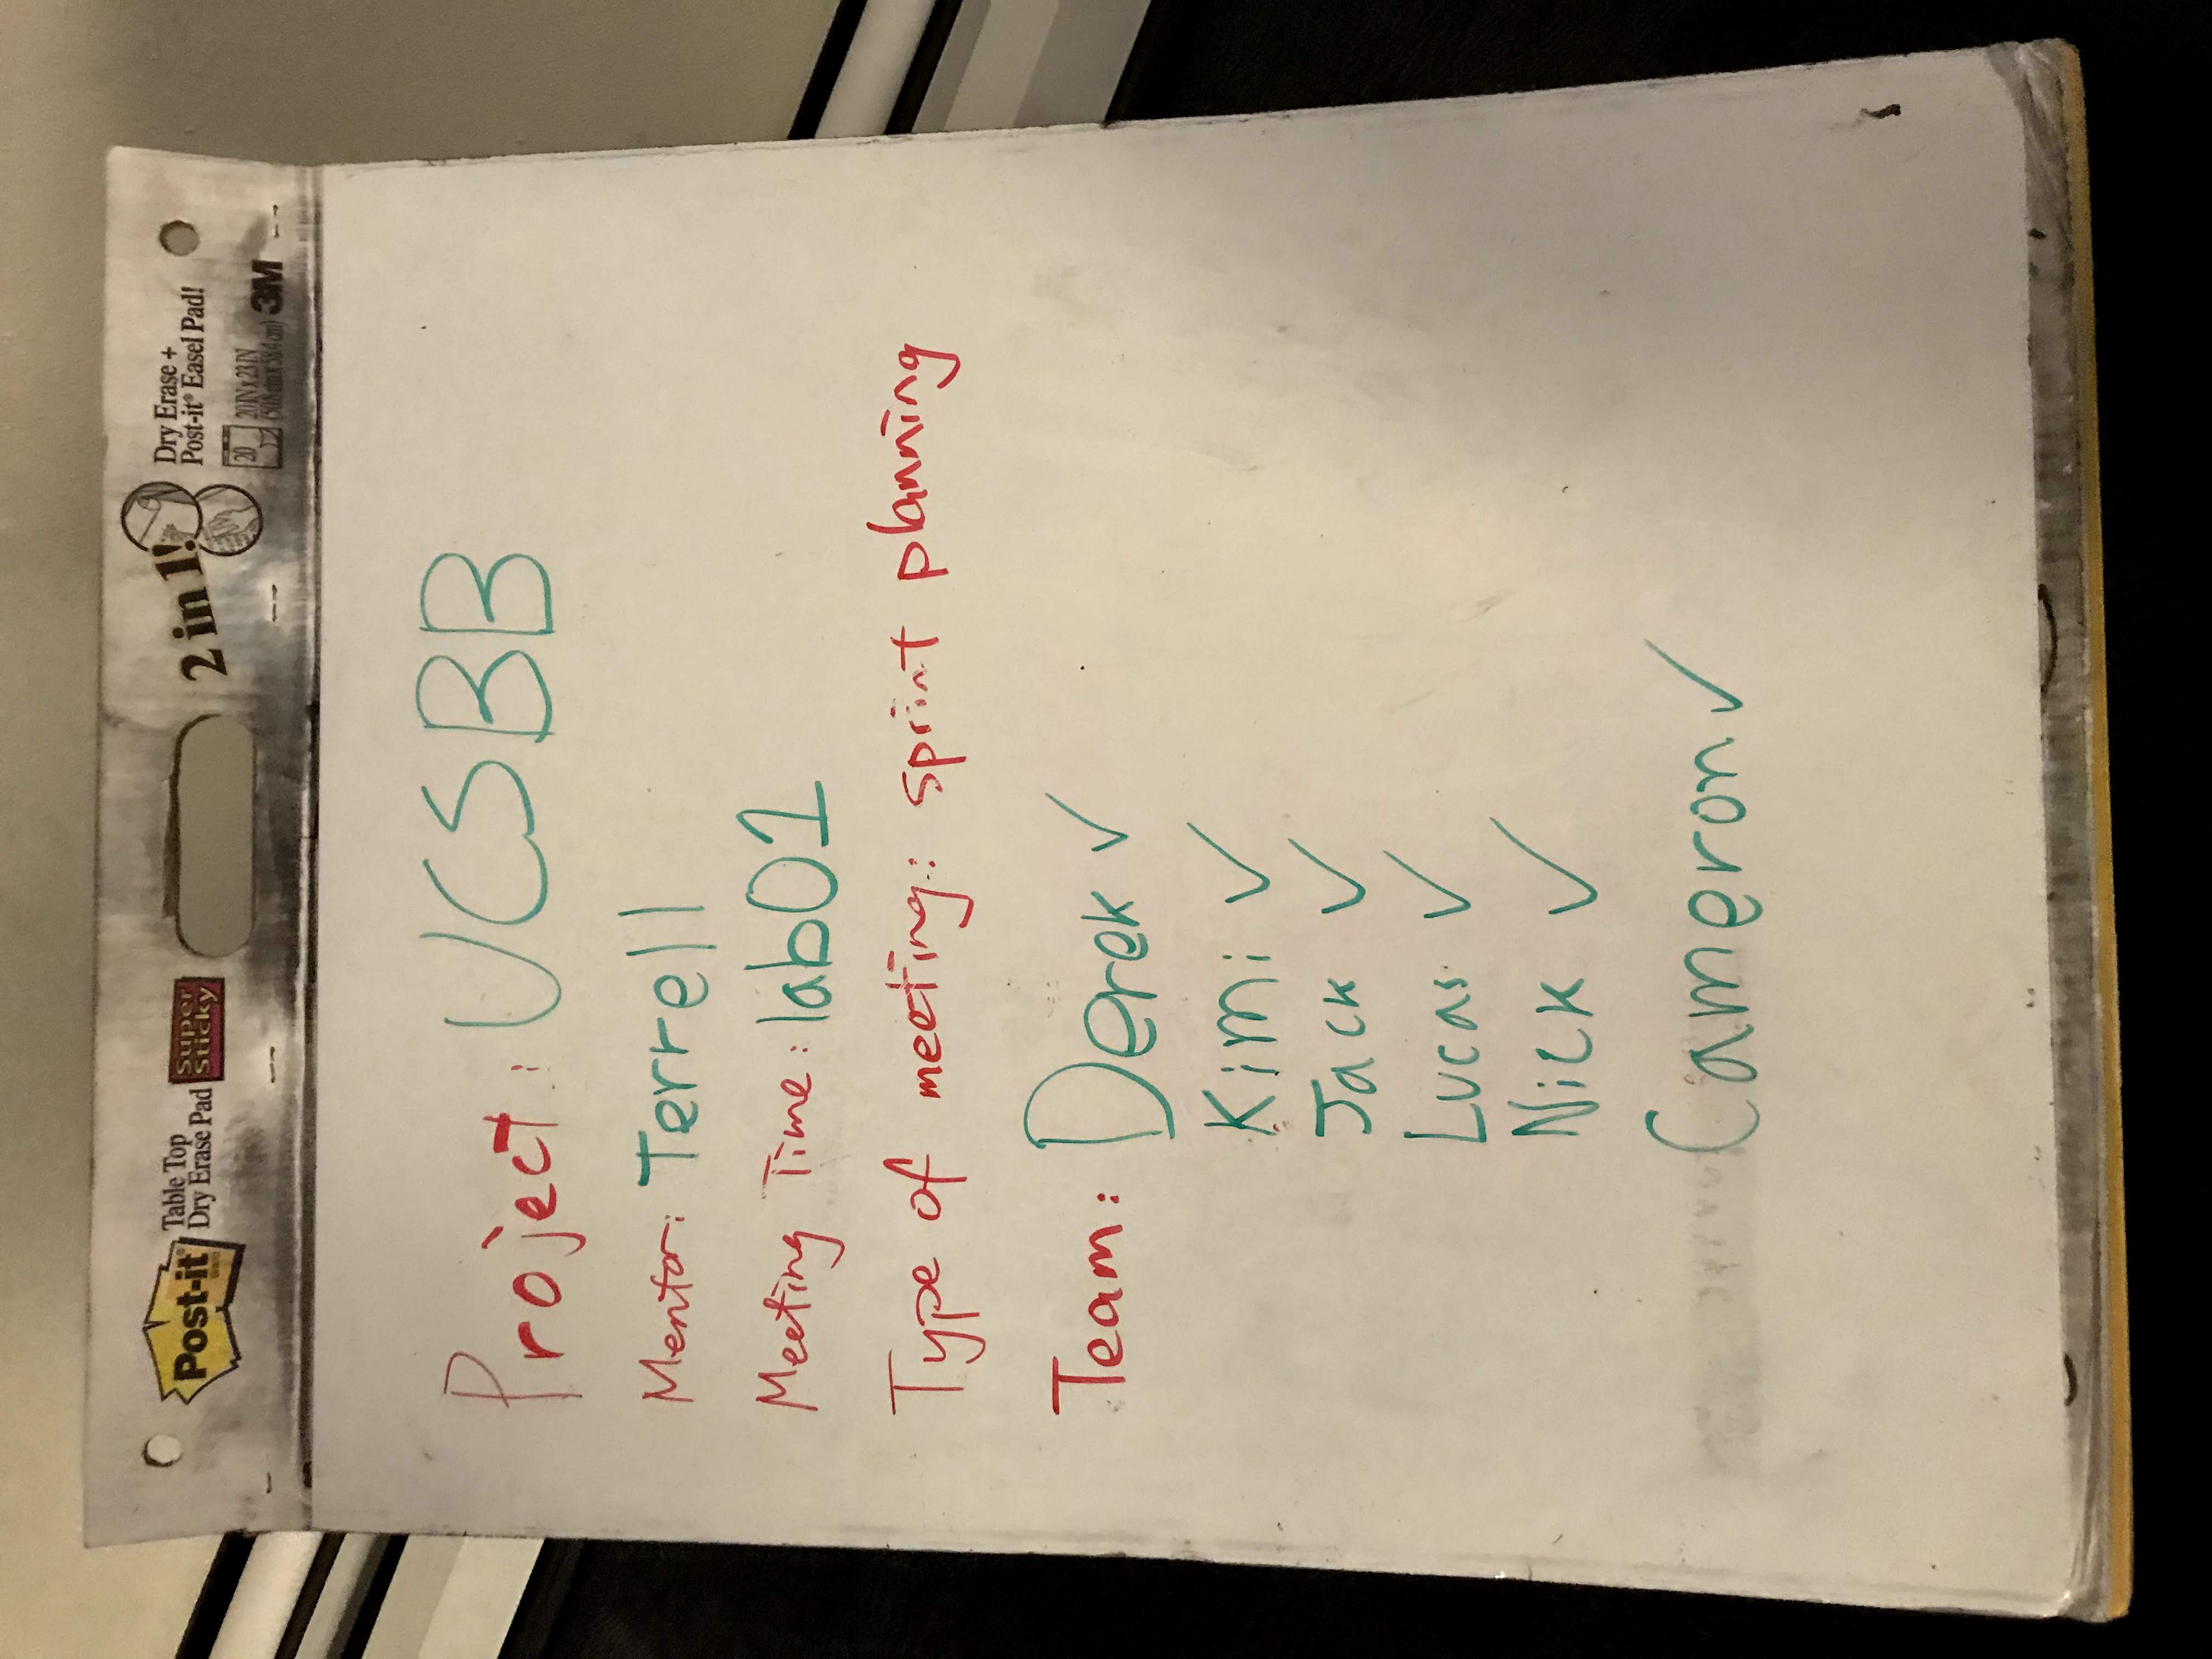 Post-it Table Top Super Sticky 2 in 1! Dry Erase +
Brand Dry Erase Pad Post-it® Easel Pad!
20 20 IN x 23 IN
(50.8 cm x 58.4 cm) 3M
Project: UCSBB
Mentor: Terrell
Meeting Time: lab01
Type of meeting: sprint planning
Team: Derek ✓
Kimi ✓
Jack ✓
Lucas ✓
Nick ✓
Cameron ✓